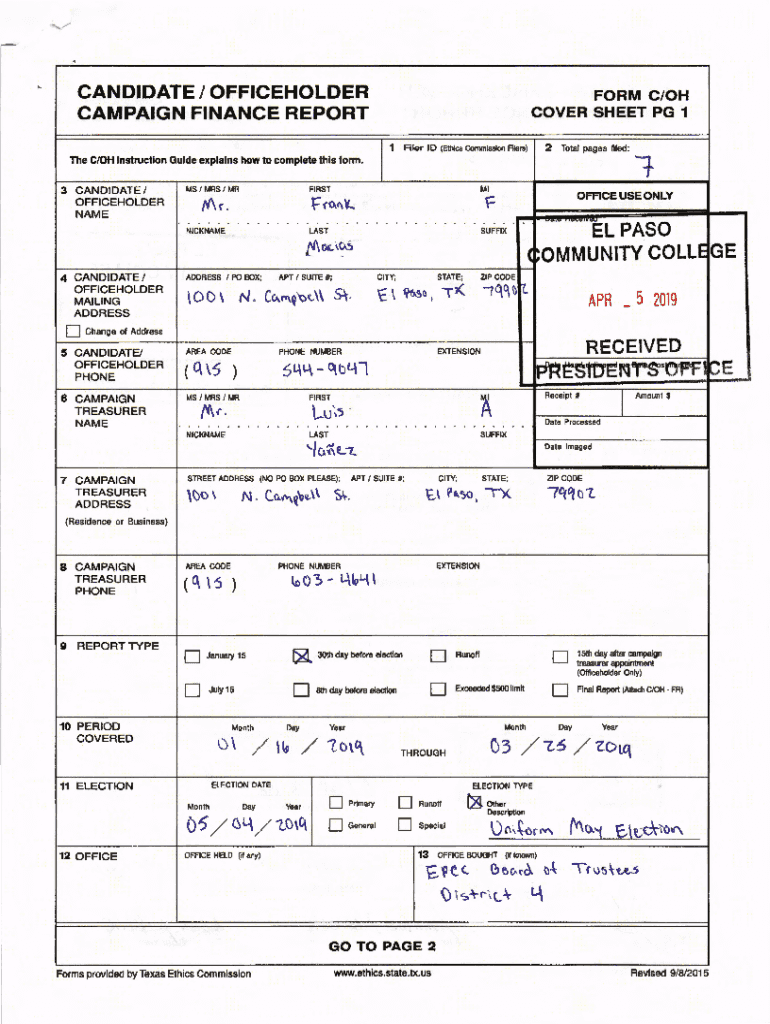 CANDIDATE / OFFICEHOLDER
CAMPAIGN FINANCE REPORT
FORM C/OH
COVER SHEET PG 1
The C/OH Instruction Guide explains how to complete this form.
1 Filer ID (Ethics Commission Filers)
2 Total pages filed:
7
3 CANDIDATE /
OFFICEHOLDER
NAME
MS / MRS / MR FIRST MI
Mr. Frank F
NICKNAME LAST SUFFIX
Macias
OFFICE USE ONLY
Date Received
EL PASO
COMMUNITY COLLEGE
APR - 5 2019
RECEIVED
PRESIDENT'S OFFICE
4 CANDIDATE /
OFFICEHOLDER
MAILING
ADDRESS
Change of Address
ADDRESS / PO BOX; APT / SUITE #; CITY; STATE; ZIP CODE
1001 N. Campbell St. El Paso, TX 79902
5 CANDIDATE/
OFFICEHOLDER
PHONE
AREA CODE PHONE NUMBER EXTENSION
(915) 544-9047
Receipt # Amount $
Date Processed
Date Imaged
6 CAMPAIGN
TREASURER
NAME
MS / MRS / MR FIRST MI
Mr. Luis A
NICKNAME LAST SUFFIX
Yañez
7 CAMPAIGN
TREASURER
ADDRESS
(Residence or Business)
STREET ADDRESS (NO PO BOX PLEASE); APT / SUITE #; CITY; STATE; ZIP CODE
1001 N. Campbell St. El Paso, TX 79902
8 CAMPAIGN
TREASURER
PHONE
AREA CODE PHONE NUMBER EXTENSION
(915) 603-4641
9 REPORT TYPE
January 15 30th day before election Runoff 15th day after campaign
treasurer appointment
(Officeholder Only)
July 15 8th day before election Exceeded $500 limit Final Report (Attach C/OH - FR)
10 PERIOD
COVERED
Month Day Year Month Day Year
01 / 16 / 2019 THROUGH 03 / 25 / 2019
11 ELECTION
ELECTION DATE
Month Day Year
05 / 04 / 2019
ELECTION TYPE
Primary Runoff Other
Description
General Special Uniform May Election
12 OFFICE
OFFICE HELD (if any)
13 OFFICE SOUGHT (if known)
EPCC Board of Trustees
District 4
GO TO PAGE 2
Forms provided by Texas Ethics Commission www.ethics.state.tx.us Revised 9/8/2015